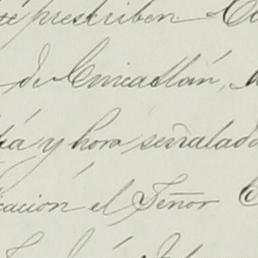 te prescriben
de Cuicatlán,
día y hora señalado
cación el Señor